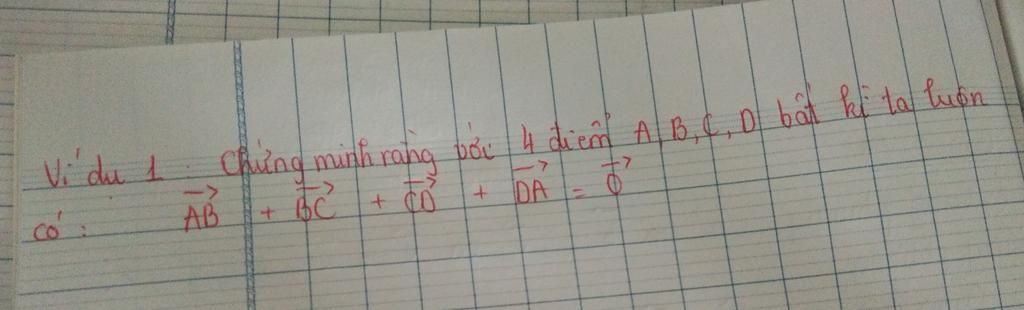 Ví dụ 1 : Chứng minh rằng với 4 điểm A, B, C, D bất kì ta luôn
có : \overrightarrow{AB} + \overrightarrow{BC} + \overrightarrow{CD} + \overrightarrow{DA} = \overrightarrow{0}